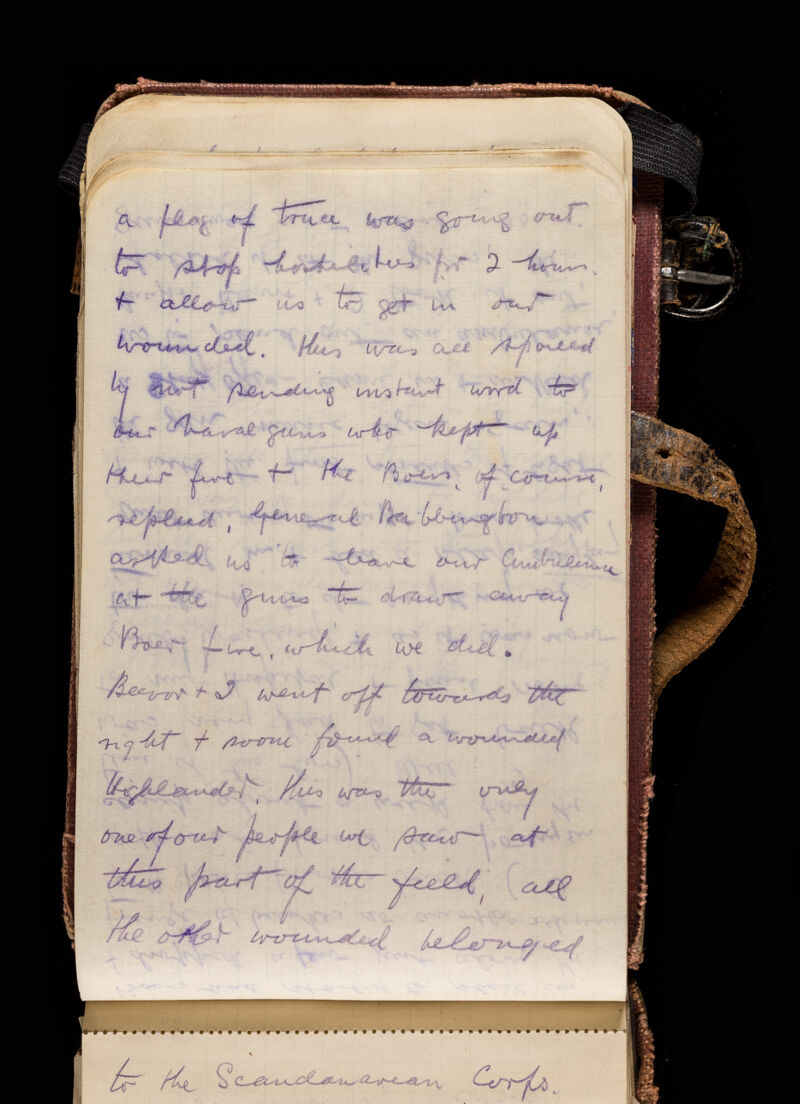 a flag of truce was going out
to stop hostilities for 2 hours.
+ allow us to get in our
wounded. This was all spoiled
by not sending instant word to
our Naval guns who kept up
their fire + the Boers, of course,
replied. General Babbington
asked us to leave our Ambulance
at the guns to draw away
Boer fire, which we did.
Beevor + I went off towards the
right + soon found a wounded
Highlander. This was the only
one of our people we saw at
this part of the field, (all
the other wounded belonged
to the Scandanavean Corps.